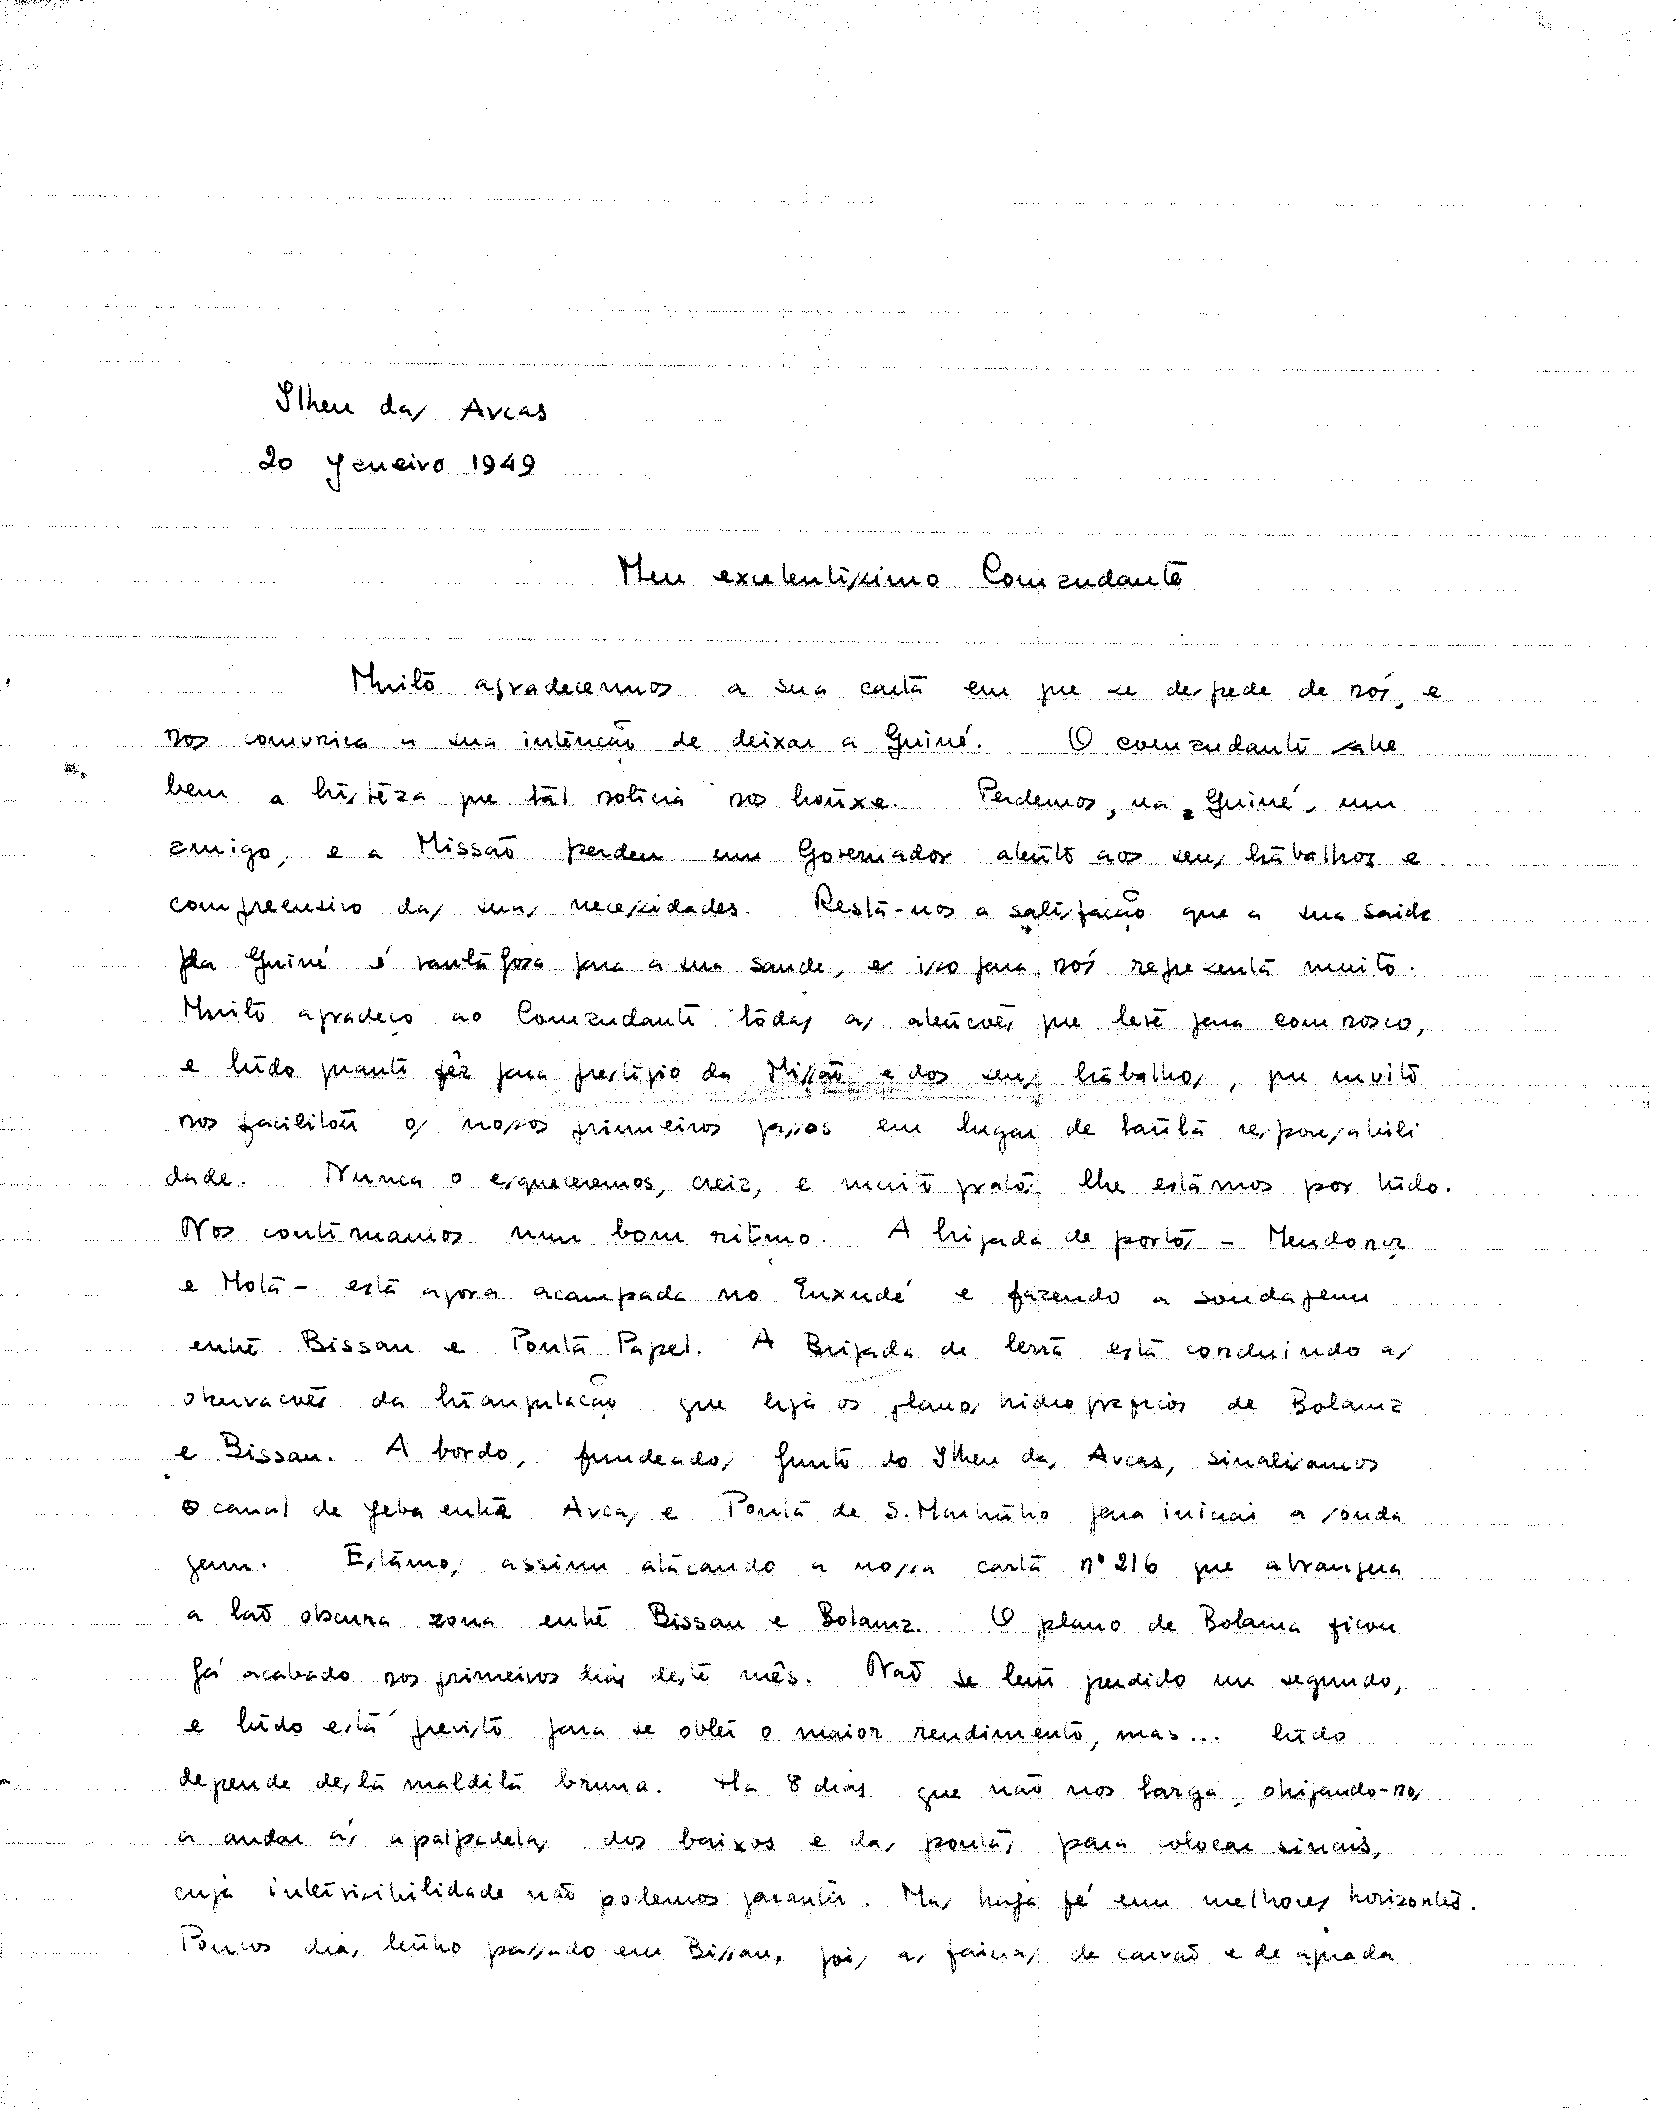 Ilheu das Arcas
20 Janeiro 1949
Meu excelentissimo Comandante
Muito agradecemos a sua carta em que se despede de nós, e
nos comunica a sua intenção de deixar a Guiné. O comandante sabe
bem a tristeza que tal noticia nos trouxe. Perdemos, na Guiné, um
amigo, e a Missão perdeu um Governador atento aos seus trabalhos e
compreensivo das suas necessidades. Resta-nos a satisfação que a sua saida
da Guiné é vantajosa para a sua saude, e isso para nós representa muito.
Muito agradeço ao Comandante todas as atenções que teve para comnosco,
e tudo quanto fêz para prestigio da Missão e dos seus trabalhos, que muito
nos facilitou os nossos primeiros passos em lugar de tanta responsabili
dade. Nunca o esqueceremos, creia, e muito gratos lhe estâmos por tudo.
Nos continuamos num bom ritmo. A brigada de portos - Mendonça
e Mota - está agora acampada no Enxudé e fazendo a sondagem
entre Bissau e Ponta Papel. A Brigada de terra está concluindo as
observacões da triangulação que liga os planos hidrograficos de Bolama
e Bissau. A bordo, fundeados junto do Ilheu das Arcas, sinalisamos
o canal de Geba entre Arcas e Ponta de S. Martinho para iniciar a sonda
gem. Estâmos assim atacando a nossa carta nº 216 que abrangera
a tão obscura zona entre Bissau e Bolama. O plano de Bolama ficou
já acabado nos primeiros dias deste mês. Não se tem perdido um segundo,
e tudo está previsto para se obter o maior rendimento, mas... tudo
depende desta maldita bruma. Ha 8 dias que não nos larga, obrigando-nos
a andar ás apalpadelas dos baixos e das pontas para colocar sinais,
cuja intervisibilidade não podemos garantir. Mas haja fé em melhores horizontes.
Poucos dias tenho passado em Bissau, pois as fainas de carvão e de aguada